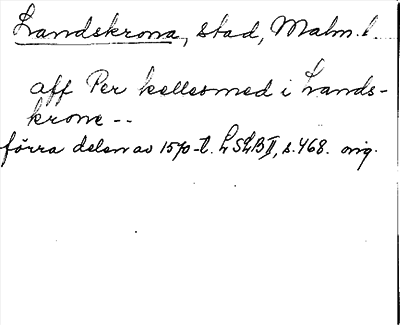 Landskrona, stad, Malm. l.
aff Per kellesmed i Lands-
krone --
förra delen av 1570-t. LSLB II, s. 468. orig.